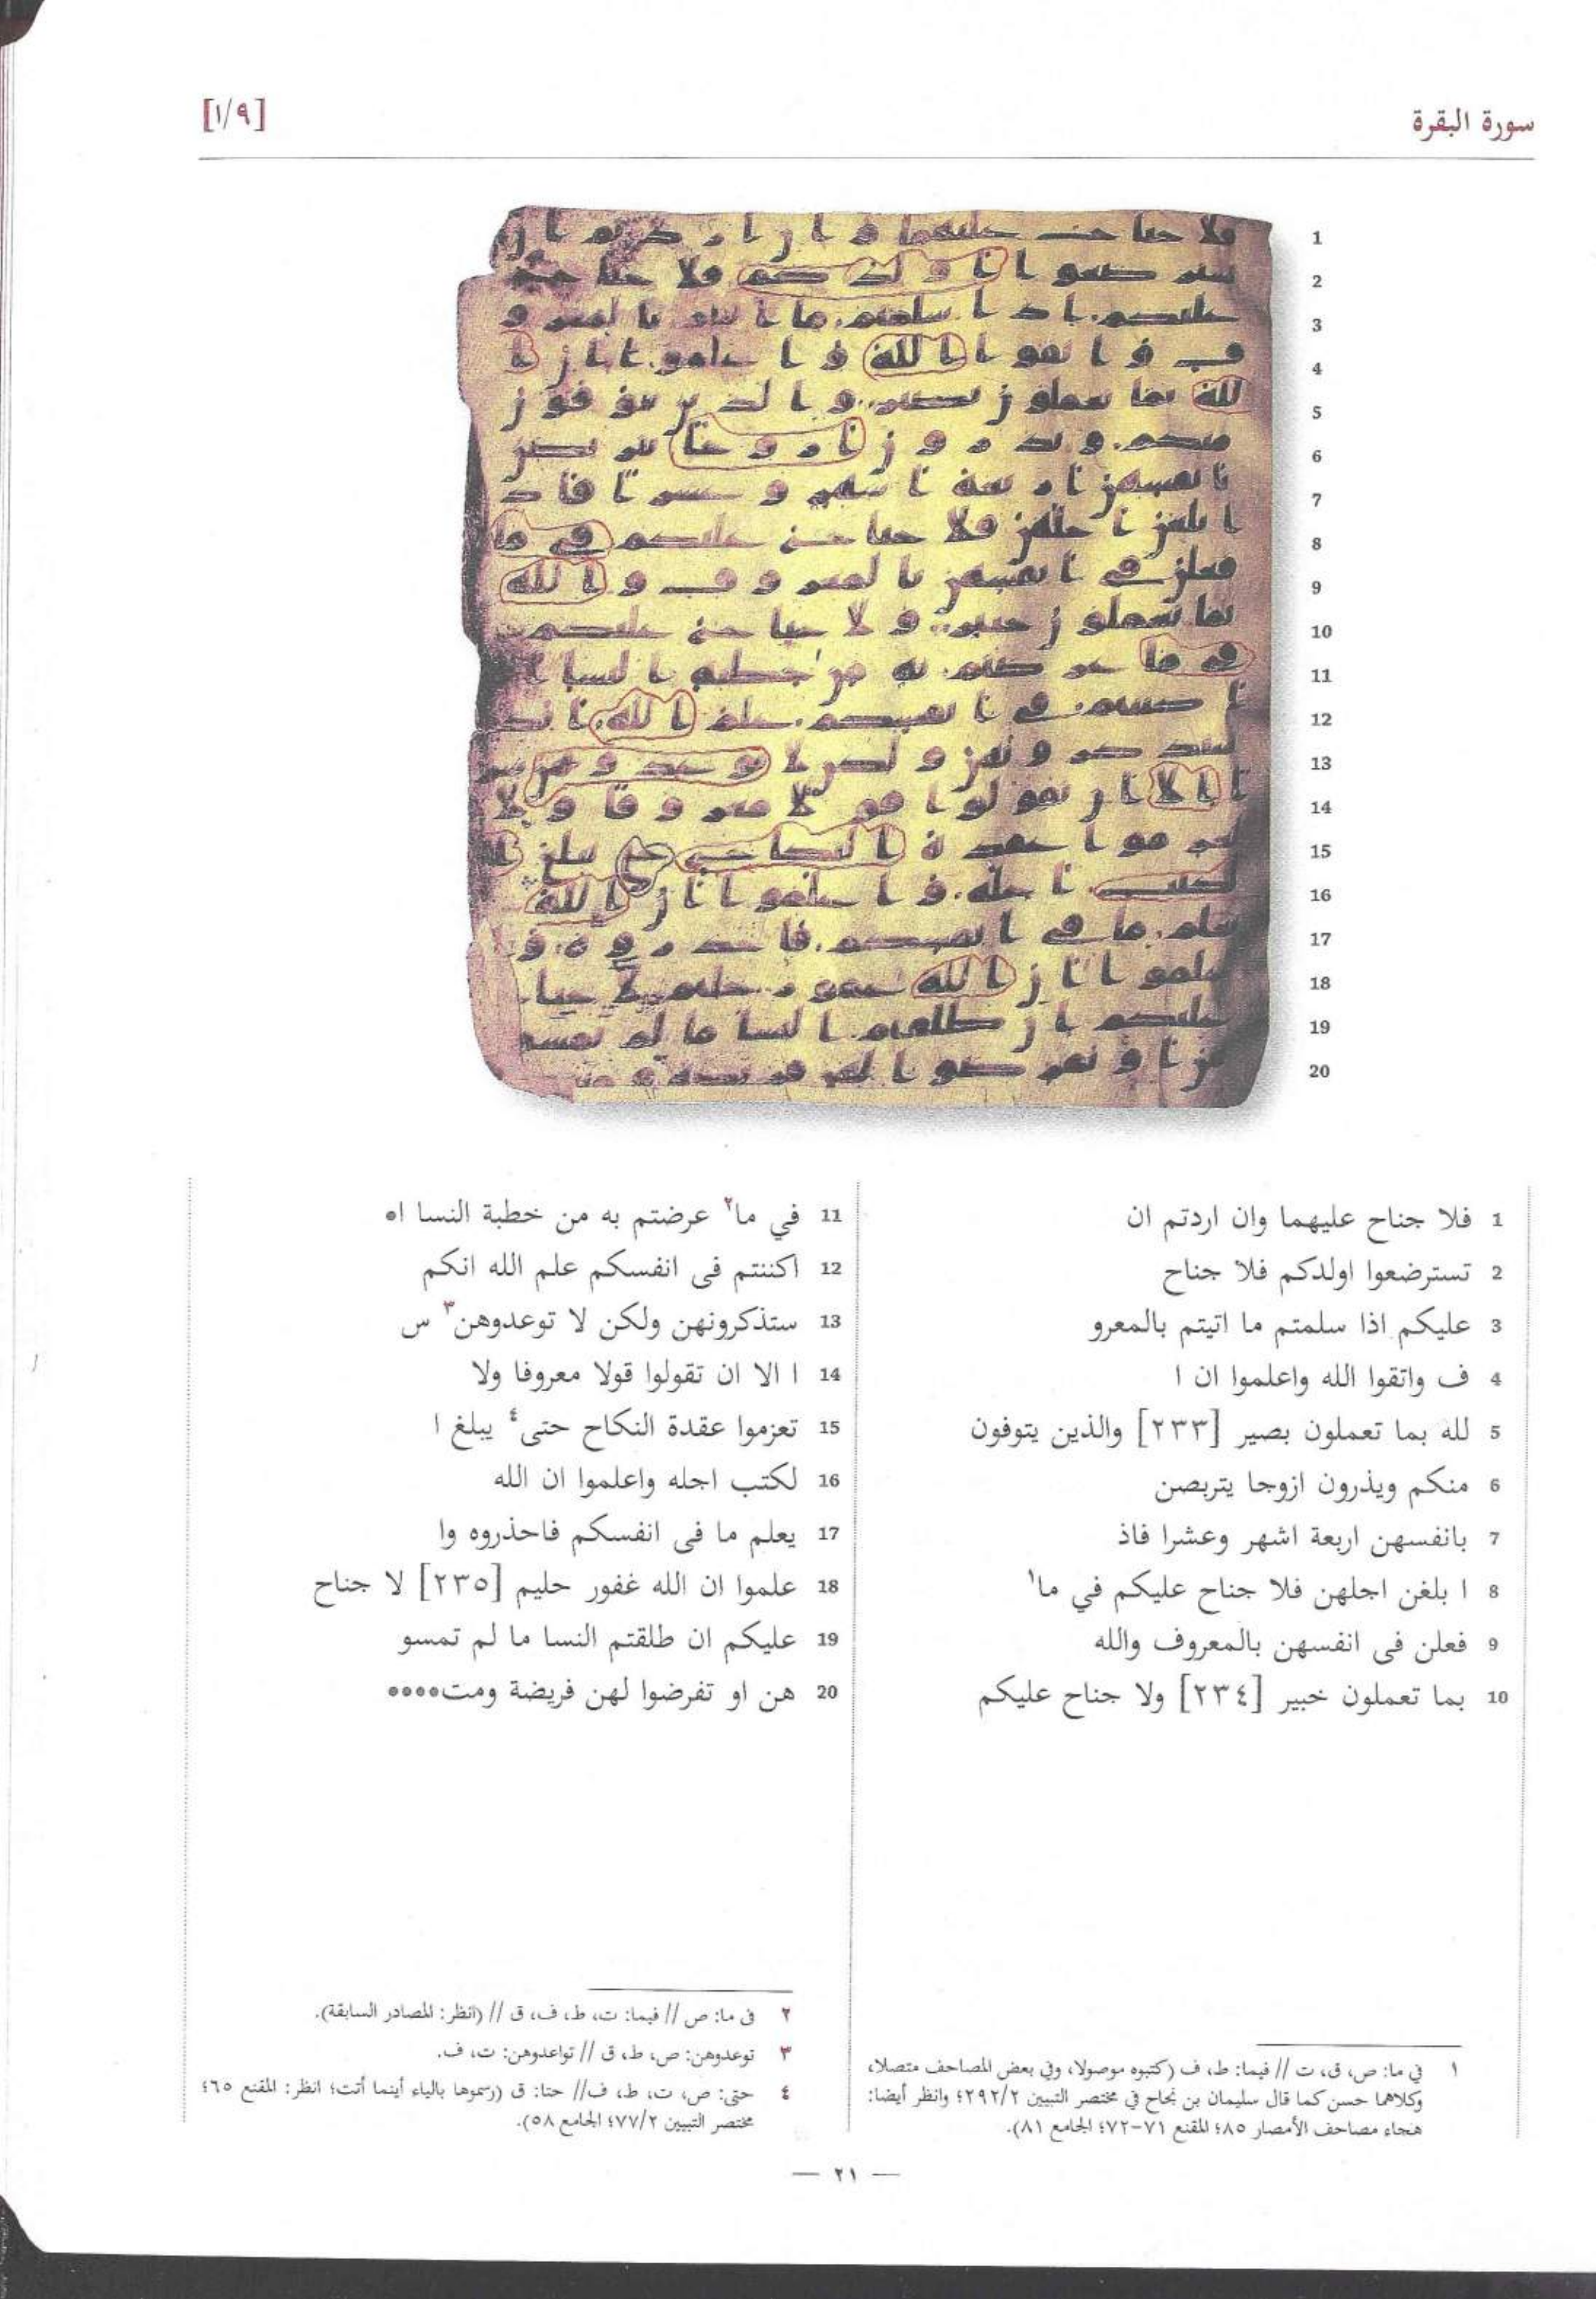 سورة البقرة
[٩/١]
1 فلا جناح عليهما وان اردتم ان
2 تسترضعوا اولدكم فلا جناح
3 عليكم اذا سلمتم ما اتيتم بالمعرو
4 ف واتقوا الله واعلموا ان ا
5 لله بما تعملون بصير [٢٣٣] والذين يتوفون
6 منكم ويذرون ازوجا يتربصن
7 بانفسهن اربعة اشهر وعشرا فاذ
8 ا بلغن اجلهن فلا جناح عليكم في ما١
9 فعلن فى انفسهن بالمعروف والله
10 بما تعملون خبير [٢٣٤] ولا جناح عليكم
11 في ما٢ عرضتم به من خطبة النسا ا●
12 اكننتم فى انفسكم علم الله انكم
13 ستذكرونهن ولكن لا توعدوهن٣ س
14 ا الا ان تقولوا قولا معروفا ولا
15 تعزموا عقدة النكاح حتى٤ يبلغ ا
16 لكتب اجله واعلموا ان الله
17 يعلم ما فى انفسكم فاحذروه وا
18 علموا ان الله غفور حليم [٢٣٥] لا جناح
19 عليكم ان طلقتم النسا ما لم تمسو
20 هن او تفرضوا لهن فريضة ومت●●●●
١ في ما: ص، ق، ت // فيما: ط، ف (كتبوه موصولا، وفي بعض المصاحف متصلا،
وكلاهما حسن كما قال سليمان بن نجاح في مختصر التبيين ٢/٢٩٢؛ وانظر أيضا:
هجاء مصاحف الأمصار ٨٥؛ المقنع ٧١-٧٢؛ الجامع ٨١).
٢ فى ما: ص // فيما: ت، ط، ف، ق // (انظر: المصادر السابقة).
٣ توعدوهن: ص، ط، ق // تواعدوهن: ت، ف.
٤ حتى: ص، ت، ط، ف// حتا: ق (رسموها بالياء أينما أتت؛ انظر: المقنع ٦٥؛
مختصر التبيين ٢/٧٧؛ الجامع ٥٨).
— ٢١ —